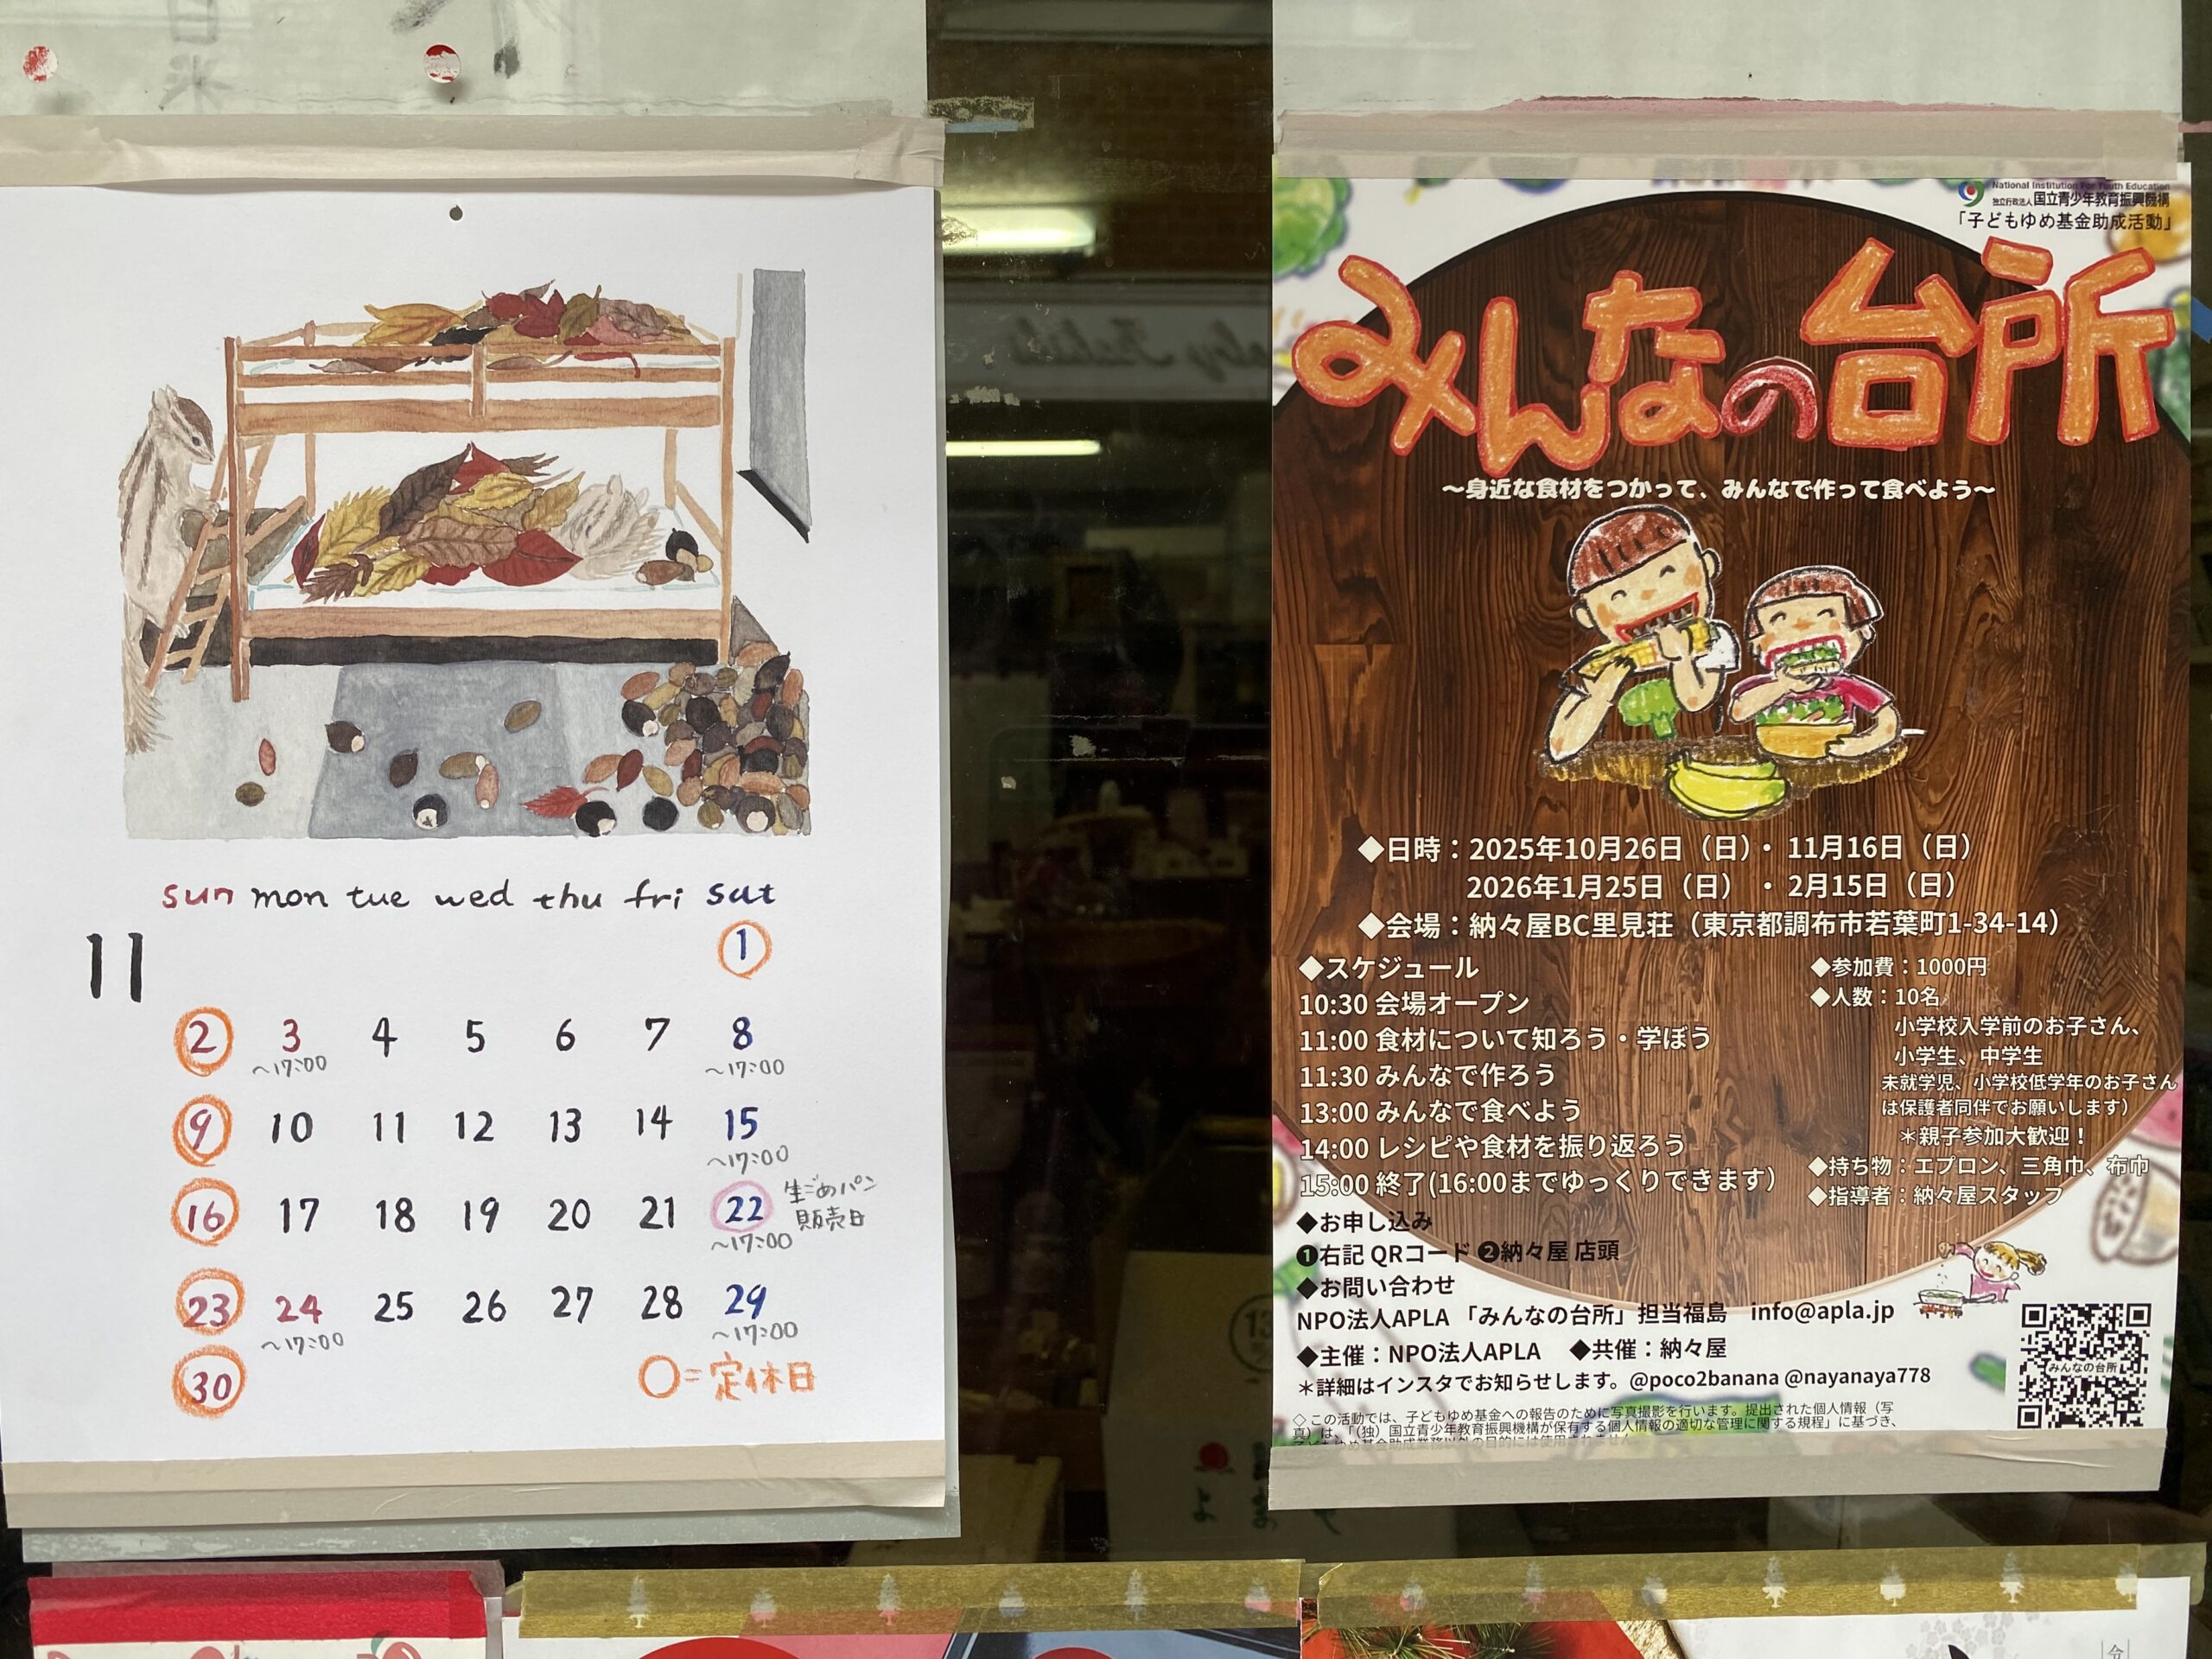 sun mon tue wed thu fri sat
11
1
2 3 4 5 6 7 8
～17:00 ～17:00
9 10 11 12 13 14 15
～17:00
16 17 18 19 20 21 22 生ごめパン
販売日
～17:00
23 24 25 26 27 28 29
～17:00 ～17:00
30 ○=定休日
National Institution For Youth Education
独立行政法人国立青少年教育振興機構
「子どもゆめ基金助成活動」
みんなの台所
～身近な食材をつかって、みんなで作って食べよう～
◆日時：2025年10月26日（日）・11月16日（日）
2026年1月25日（日）・2月15日（日）
◆会場：納々屋BC里見荘（東京都調布市若葉町1-34-14）
◆スケジュール
10:30 会場オープン
11:00 食材について知ろう・学ぼう
11:30 みんなで作ろう
13:00 みんなで食べよう
14:00 レシピや食材を振り返ろう
15:00 終了(16:00までゆっくりできます）
◆参加費：1000円
◆人数：10名
小学校入学前のお子さん、
小学生、中学生
未就学児、小学校低学年のお子さん
は保護者同伴でお願いします）
＊親子参加大歓迎！
◆持ち物：エプロン、三角巾、布巾
◆指導者：納々屋スタッフ
◆お申し込み
❶右記 QRコード ❷納々屋 店頭
◆お問い合わせ
NPO法人APLA 「みんなの台所」担当福島 info@apla.jp
◆主催：NPO法人APLA ◆共催：納々屋
＊詳細はインスタでお知らせします。@poco2banana @nayanaya778
みんなの台所
◇ この活動では、子どもゆめ基金への報告のために写真撮影を行います。提出された個人情報（写
真）は、「（独）国立青少年教育振興機構が保有する個人情報の適切な管理に関する規程」に基づき、